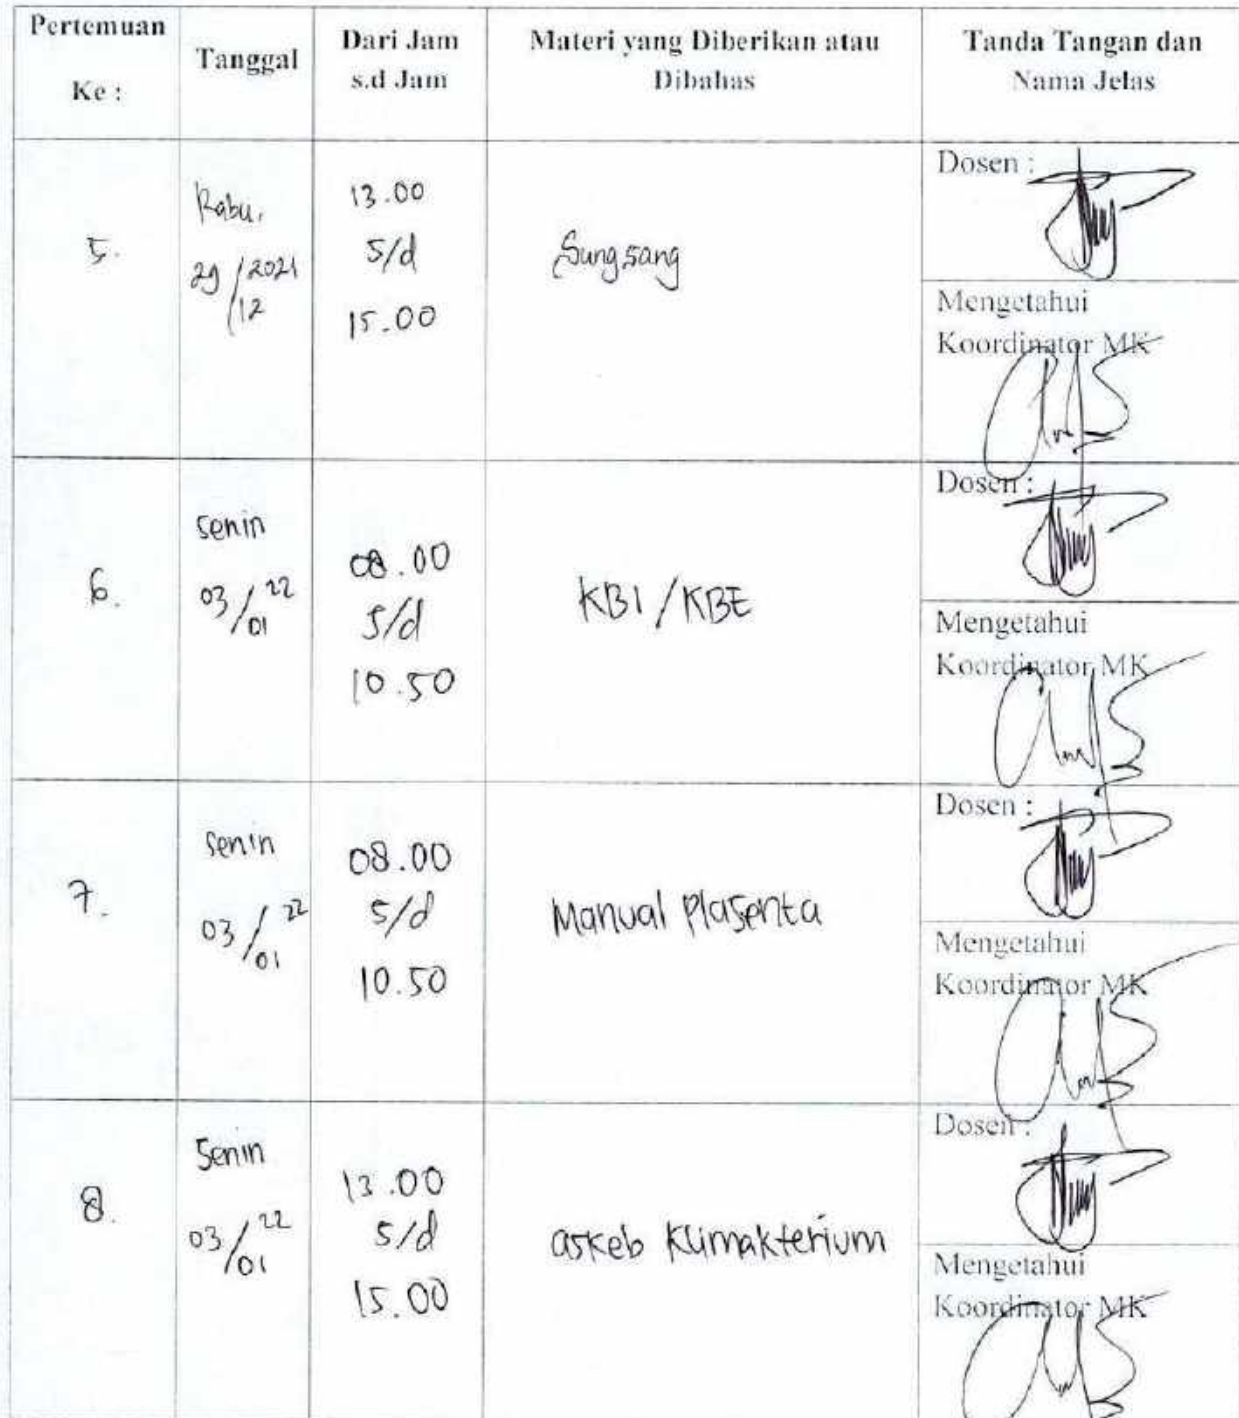 Pertemuan
Ke :
Tanggal
Dari Jam
s.d Jam
Materi yang Diberikan atau
Dibahas
Tanda Tangan dan
Nama Jelas
5.
Rabu,
29/12 2021
13.00
s/d
15.00
Sungsang
Dosen :
Mengetahui
Koordinator MK
6.
Senin
03/01 22
08.00
s/d
10.50
KBI/KBE
Dosen :
Mengetahui
Koordinator MK
7.
Senin
03/01 22
08.00
s/d
10.50
Manual Plasenta
Dosen :
Mengetahui
Koordinator MK
8.
Senin
03/01 22
13.00
s/d
15.00
askeb Klimakterium
Dosen :
Mengetahui
Koordinator MK